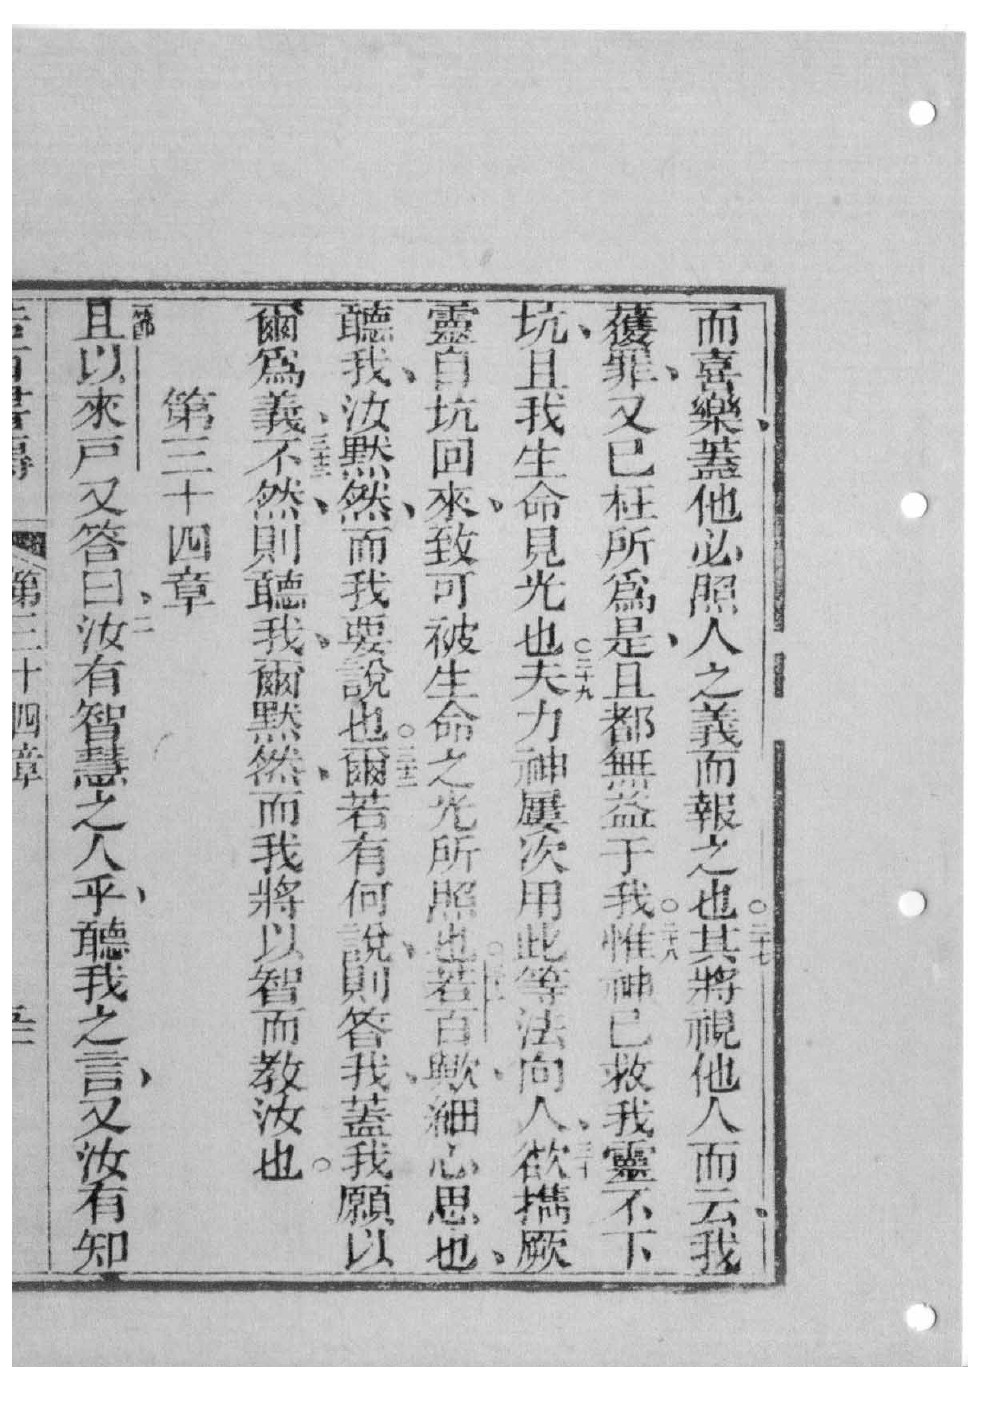 而喜樂、蓋他必照人之義而報之也。二十七其將視他人而云、我
獲罪、又已枉所爲是、且都無益于我。二十八惟神已救我靈不下
坑、且我生命見光也。二十九夫力神屢次用此等法向人、三十欲擕厥
靈自坑回來、致可被生命之光所照也。若百歟、細心思也、
聽我、汝默然、而我要說也。三十二爾若有何說、則答我、蓋我願以
爾爲義、三十三不然、則聽我、爾默然、而我將以智而教汝也。
第三十四章
一節且以來戶又答曰、二汝有智慧之人乎、聽我之言、又汝有知
第三十四章